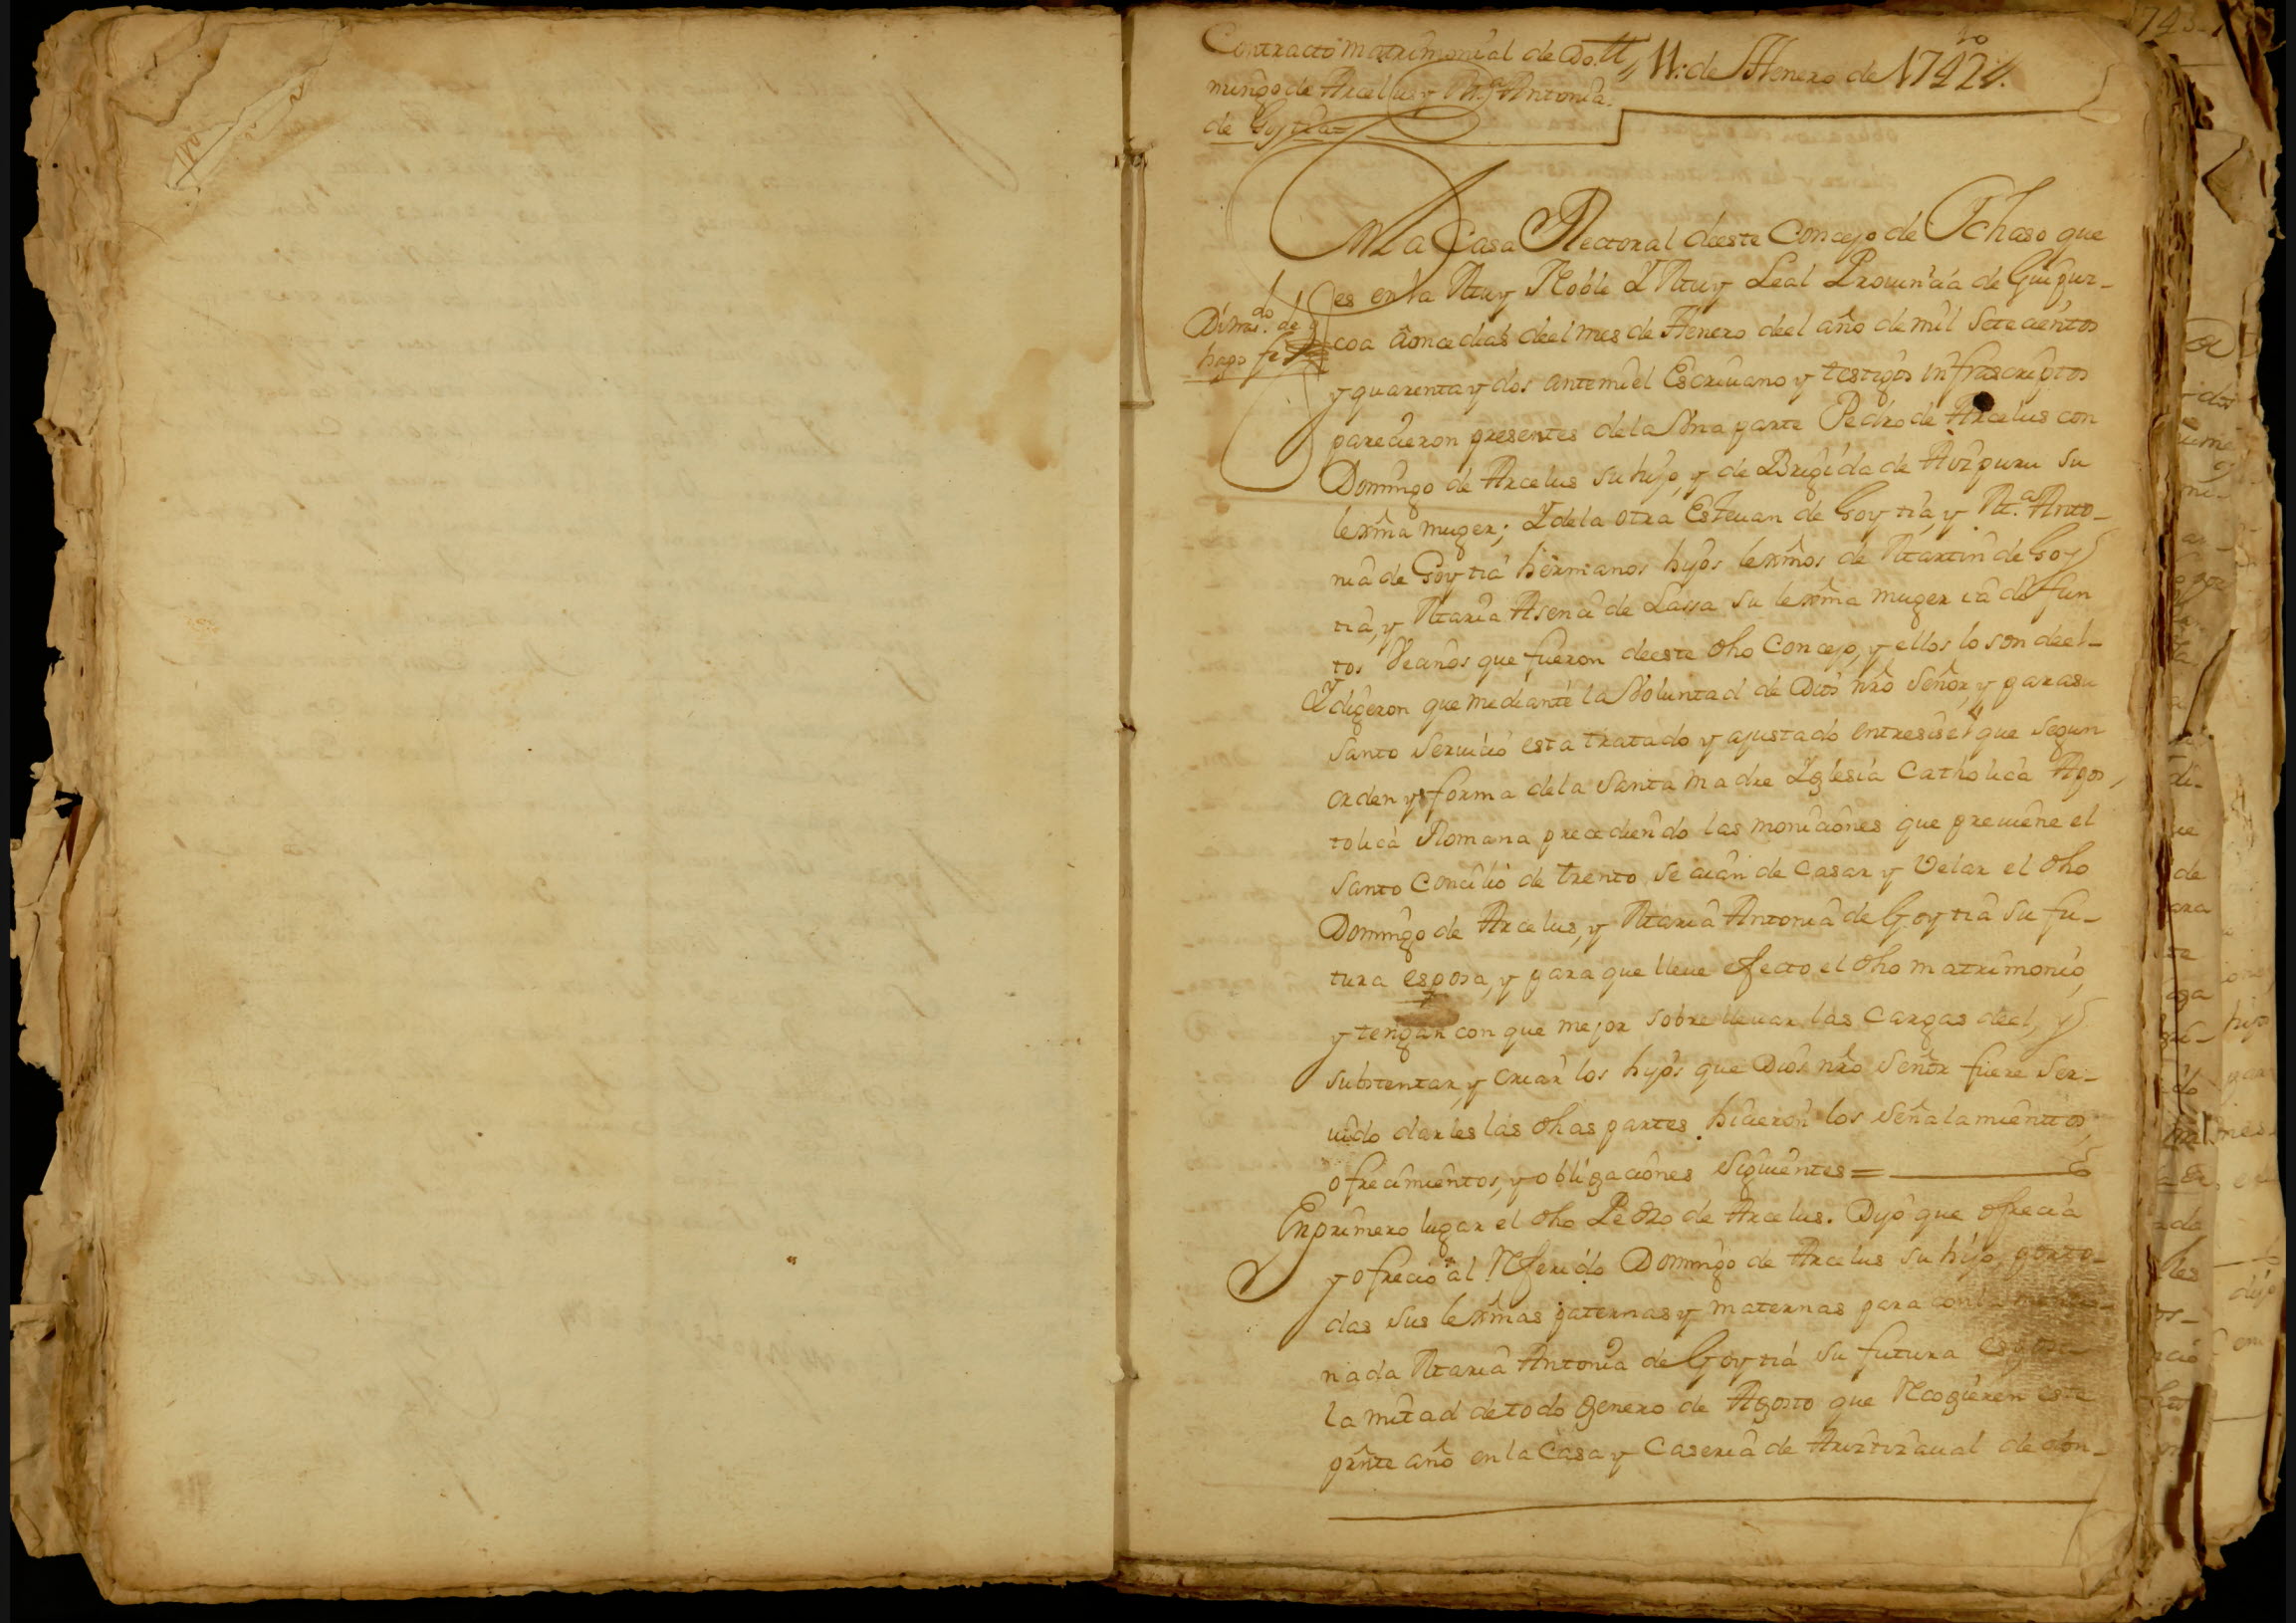 Contracto matrimonial de Do-
mingo de Arcelus y M.ª Antonia
de Goytia=
11: de Henero de 1742
En la Casa Rectoral deeste Concejo de Ichaso que
es en la Muy Noble Y Muy Leal Prouincia de Guipuz-
coa a once dias deel mes de Henero deel año de mil setecientos
y quarenta y dos ante mi el Escriuano y testigos infrascriptos
parecieron presentes de la Vna parte Pedro de Arcelus con
Domingo de Arcelus su hijo, y de Brigida de Aizpuru su
lexma muger; Y de la otra Esteuan de Goytia, y M.ª Anto-
nia de Goytia hermanos hijos lexmos de Martin de Goy
tia, y Maria Asencia de Lassa su lexma muger ia difun
tos Vecinos que fueron deeste dho Concejo, y ellos lo son deel-
Y digeron que mediante la Voluntad de Dios nro Señor, y para su
santo seruicio esta tratado y ajustado entre si el que segun
orden y forma de la Santa madre Yglesia Catholica Apos
tolica Romana precediendo las moniciones que preuiene el
santo Concilio de trento se aian de Casar y Velar el dho
Domingo de Arcelus, y Maria Antonia de Goytia su fu-
tura esposa, y para que lleue efecto el dho matrimonio,
y tengan con que mejor sobre lleuar las Cargas deel, y
substentar, y criar los hijos que Dios nro Señor fuere ser-
uido darles las dhas partes hicieron los señalamientos,
ofrecimientos, y obligaciones siguientes=
En primero lugar el dho Pedro de Arcelus. Dijo que ofrecia
y ofrecio al Referido Domingo de Arcelus su hijo, por to-
das sus lexmas paternas y maternas para con la
nada Maria Antonia de Goytia su futura esposa
la mitad de todo genero de Agosto que Recogieren este
prnte año en la Casa y Caseria de de don-
Dimdo. de q
hago fe